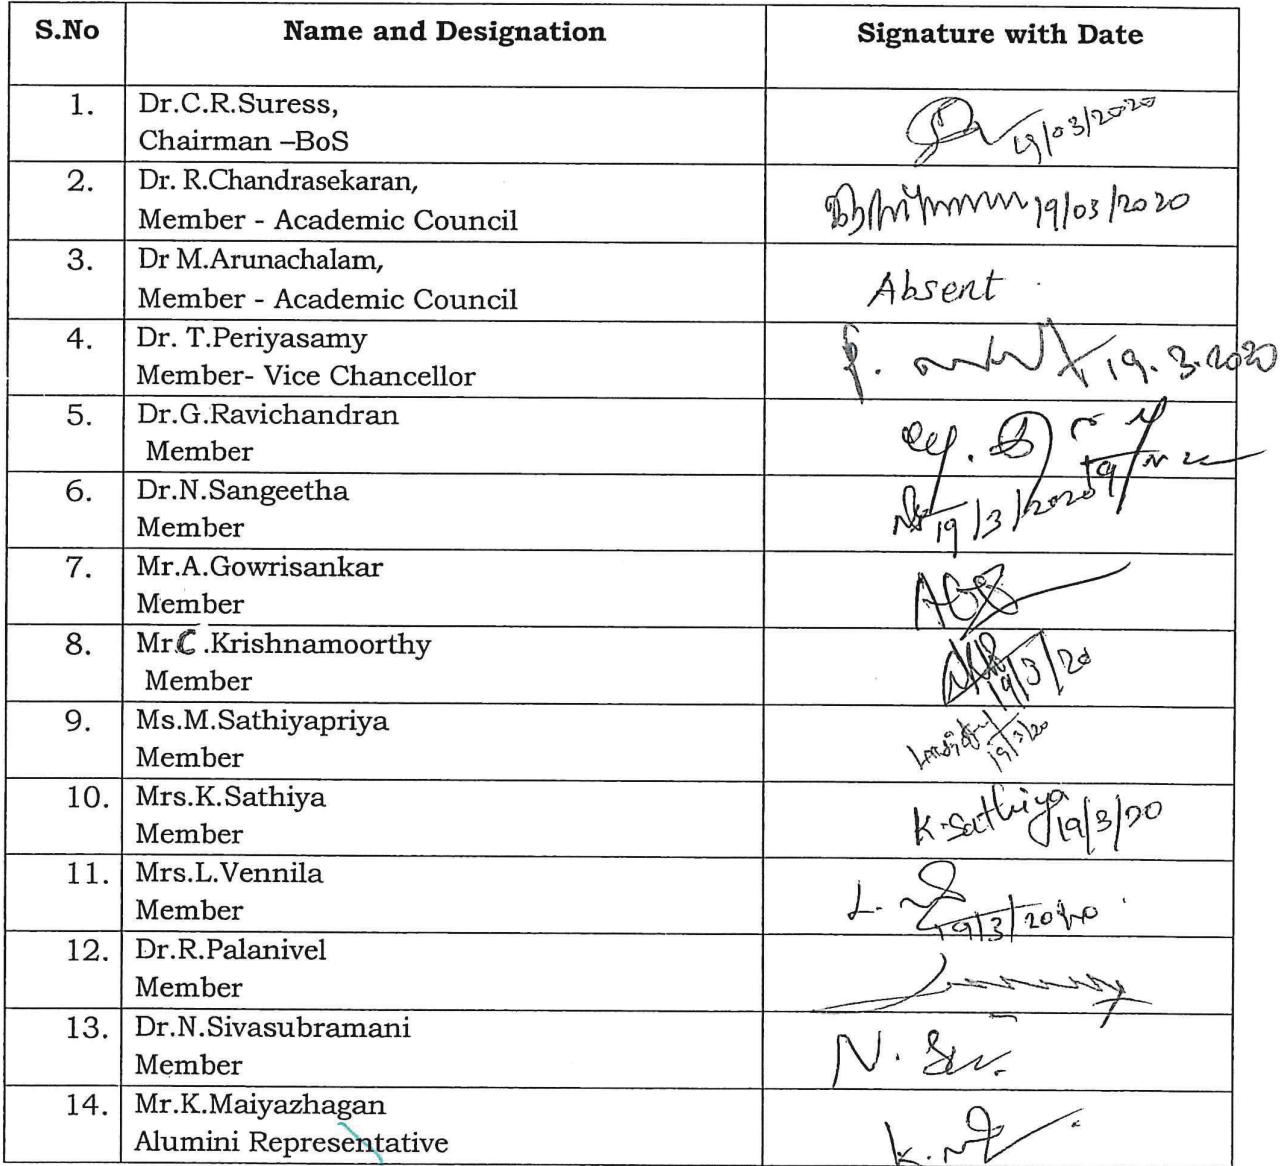 S.No Name and Designation Signature with Date
1. Dr.C.R.Suress,
Chairman –BoS 19/03/2020
2. Dr. R.Chandrasekaran,
Member - Academic Council 19/03/2020
3. Dr M.Arunachalam,
Member - Academic Council Absent
4. Dr. T.Periyasamy
Member- Vice Chancellor 19.3.2020
5. Dr.G.Ravichandran
Member
6. Dr.N.Sangeetha
Member 19/3/2020
7. Mr.A.Gowrisankar
Member
8. Mr C .Krishnamoorthy
Member 19/3/20
9. Ms.M.Sathiyapriya
Member 19/3/20
10. Mrs.K.Sathiya
Member K.Sathiya 19/3/20
11. Mrs.L.Vennila
Member L. 19/3/2020
12. Dr.R.Palanivel
Member
13. Dr.N.Sivasubramani
Member N.
14. Mr.K.Maiyazhagan
Alumini Representative K.